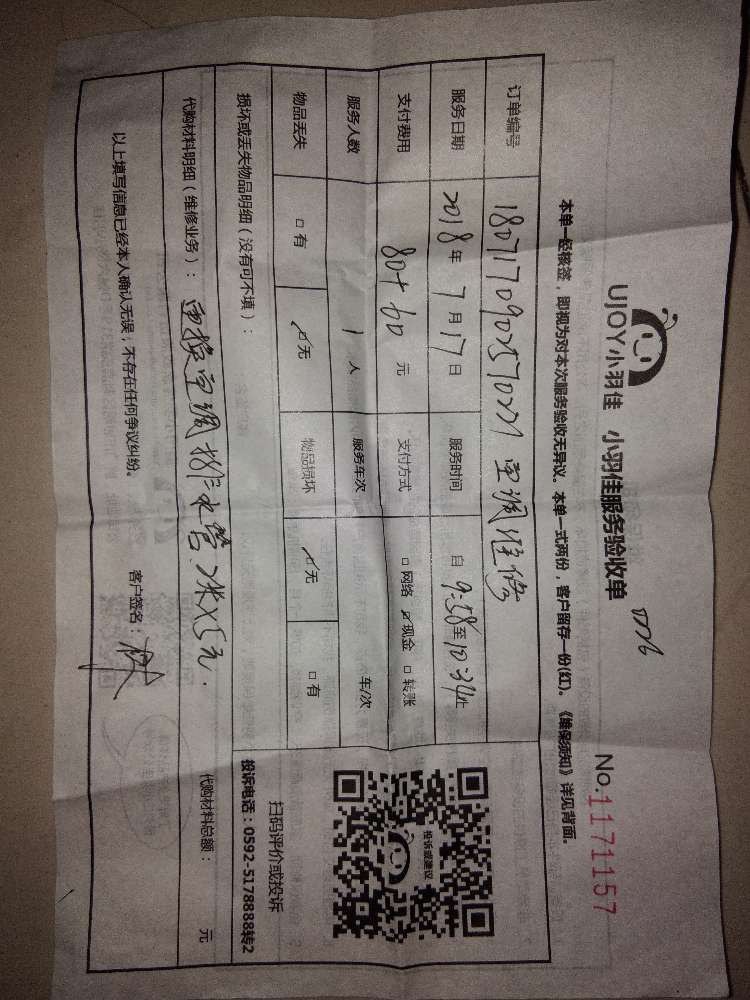 UJOY小羽佳 小羽佳服务验收单
No.1171157
本单一经核签，即视为对本次服务验收无异议。本单一式两份，客户留存一份(红)。《维保须知》详见背面。
订单编号 空调维修
服务日期 2018年7月17日 服务时间 自9:58至10:34止
支付费用 80+60元 支付方式 □网络 ☑现金 □转账
服务人数 1人 服务车次 车/次
物品丢失 □有 ☑无 物品损坏 ☑无 □有
损坏或丢失物品明细（没有可不填）：
扫码评价或投诉
投诉电话：0592-5178888转2
投诉或建议
代购材料明细（维修业务）： 更换空调排水管、2米X5元. 代购材料总额： 元
以上填写信息已经本人确认无误，不存在任何争议纠纷。 客户签名：